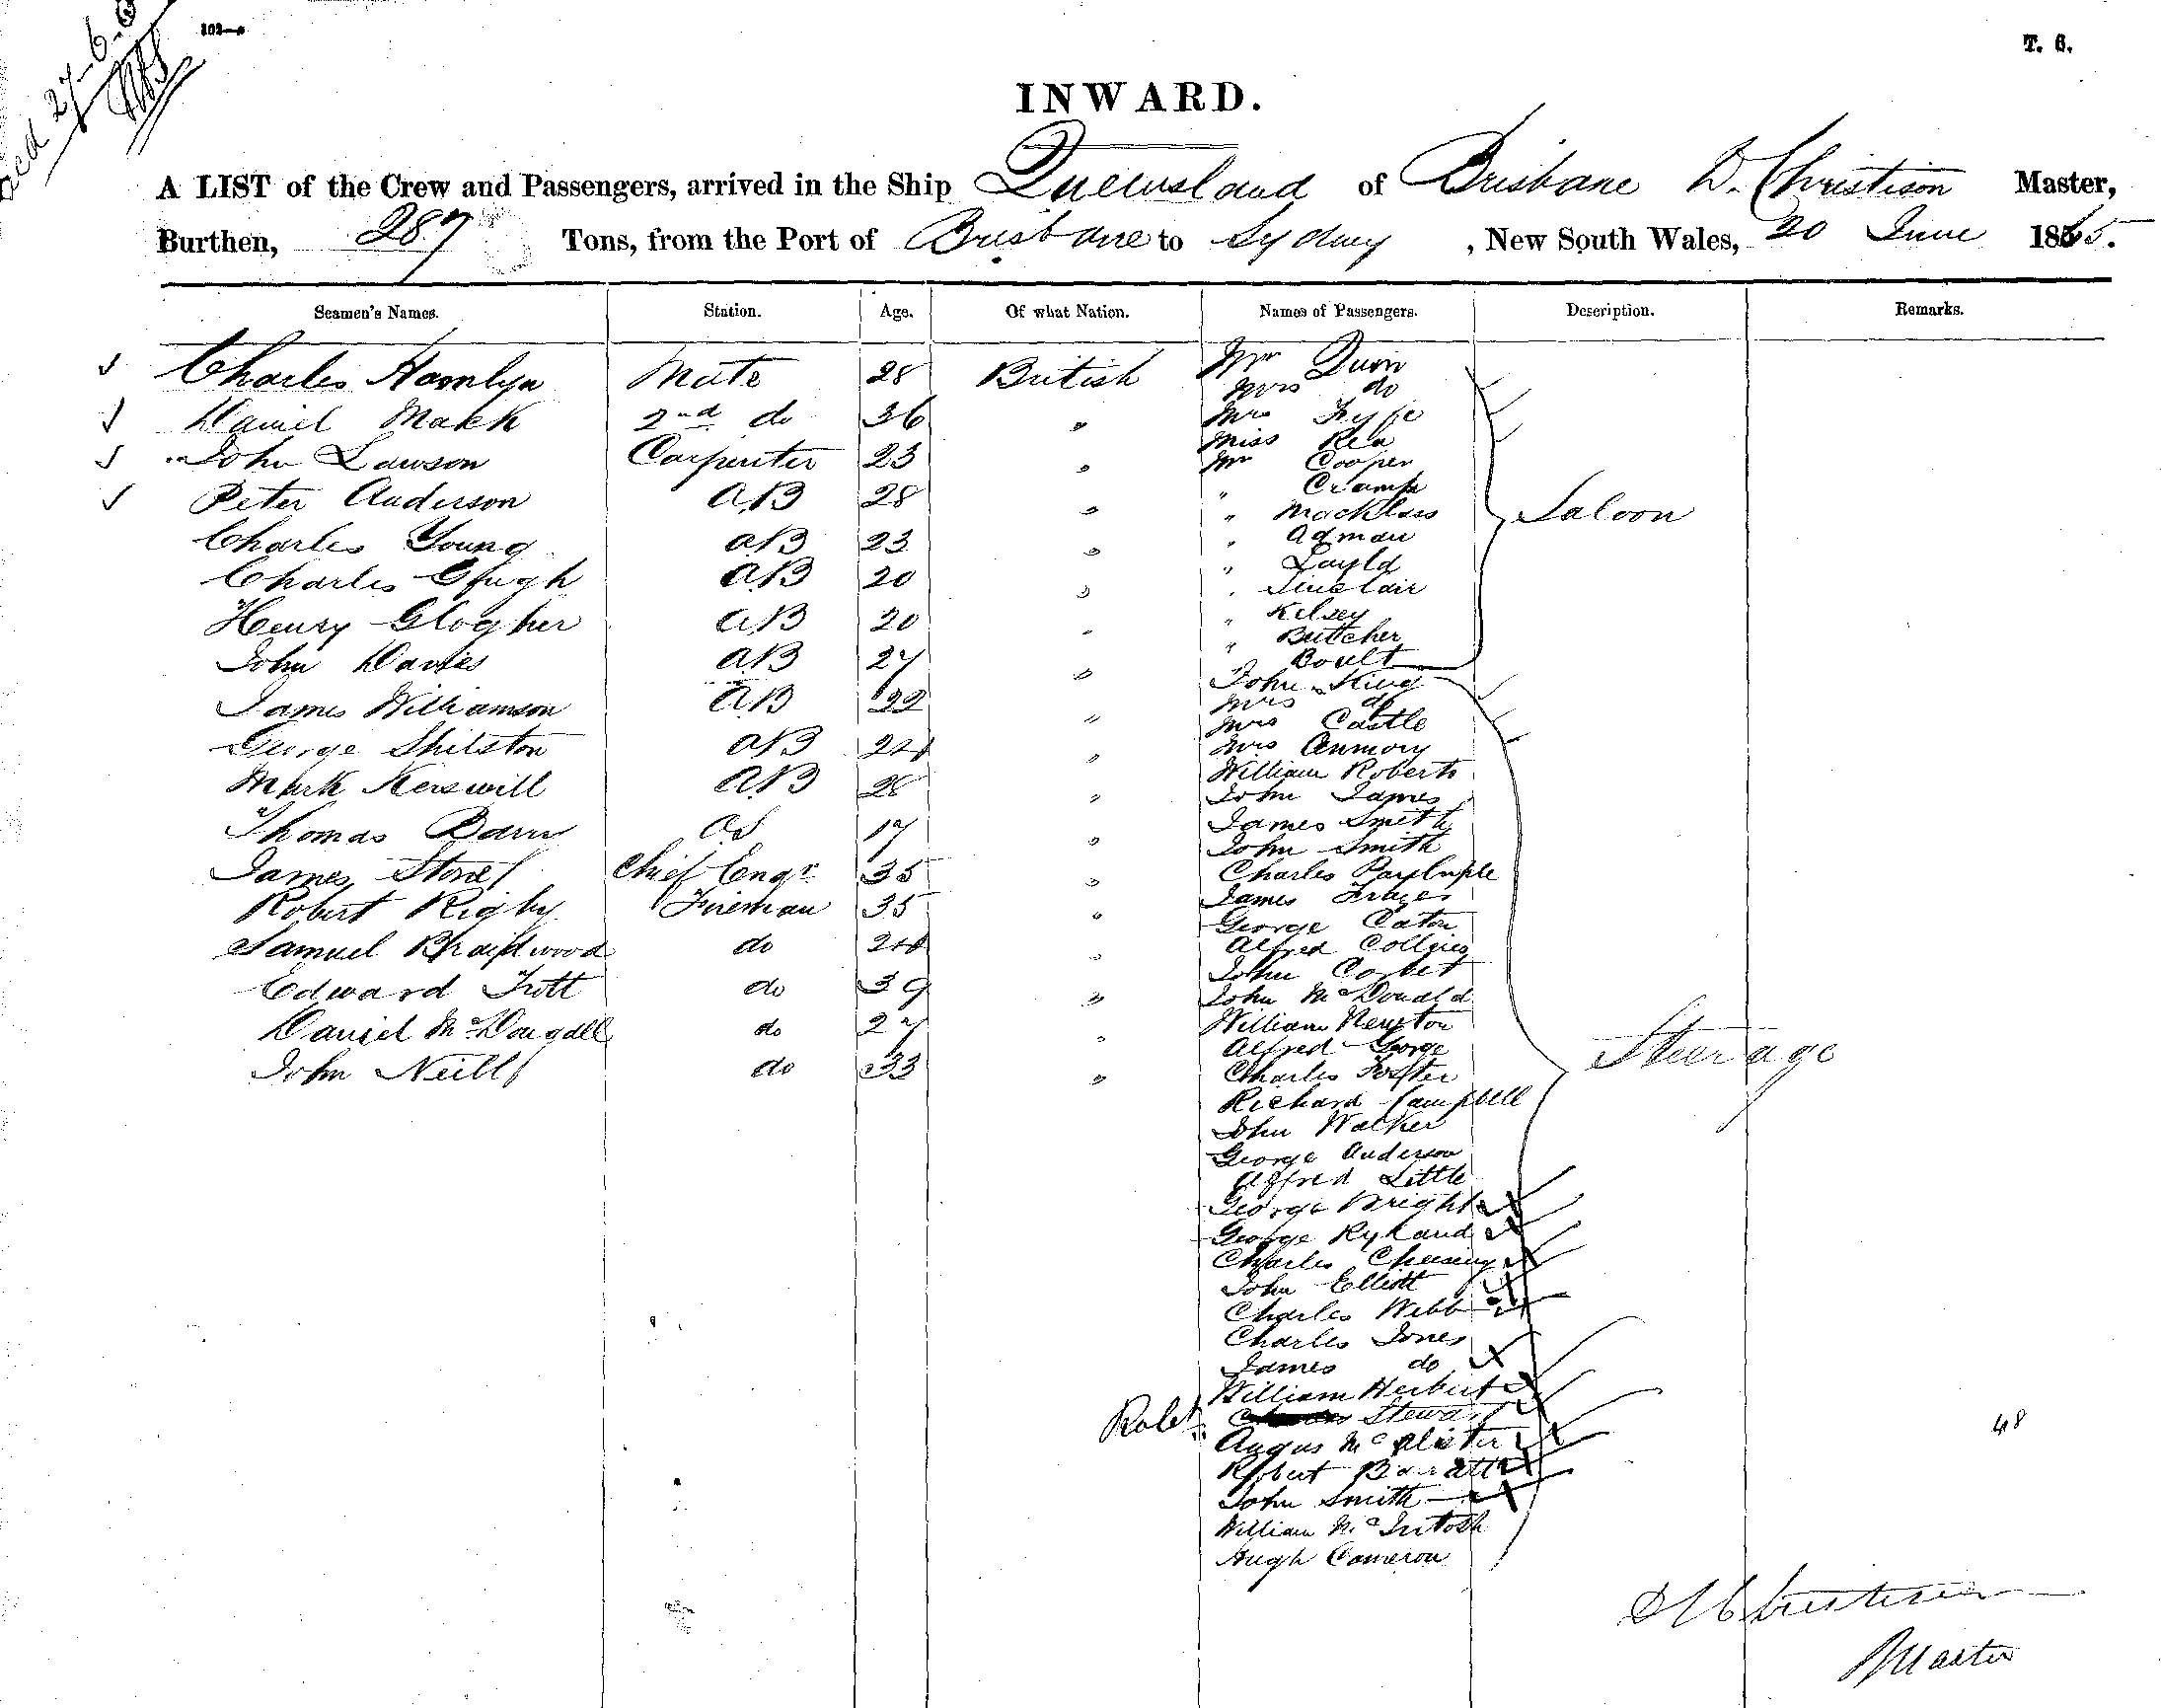 T. 6.
INWARD.
A LIST of the Crew and Passengers, arrived in the Ship Queensland of Brisbane D. Christison Master,
Burthen, 287 Tons, from the Port of Brisbane to Sydney, New South Wales, 20 June 1865.
Seamen's Names. Station. Age. Of what Nation. Names of Passengers. Description. Remarks.
Charles Hamlyn Mate 28 British Mr Dunn
Mrs do
Daniel Mack 2nd do 36 " Mrs Fyfe
Miss Rea
John Lawson Carpenter 23 " Mr Cooper
" Cramp
Peter Anderson AB 28 " " Macklass Saloon
Charles Young AB 23 " " Adman
"
Charles AB 20 " " Sinclair
Henry Glogher AB 20 " " Kelsey
" Butcher
John Davies AB 27 " Boult
John King
James Williamson AB 22 " Mrs do
Mrs Castle
George Shilston AB 24 " Mrs Anmory
William Roberts
Mark Kerswill AB 28 " John James
James Smith
Thomas OS 17 " John Smith
James Stone Chief Engr 35 " Charles
James
Robert Rigby Fireman 35 " George Eaton
Samuel Braidwood do 24 " Alfred Collins
John Corbet
Edward Trott do 39 " John McDonald
Daniel McDougall do 27 " William Newton
Alfred George Steerage
John Neill do 33 " Charles Foster
Richard Campbell
John Walker
George Anderson
Alfred Little
George Bright
George Ryland
Charles
John Elliott
Charles Webb
Charles Jones
James do
William Herbert
Robt Stewart 48
Angus McAlister
Robert Barratt
John Smith
William McIntosh
Hugh Cameron
D Christison
Master